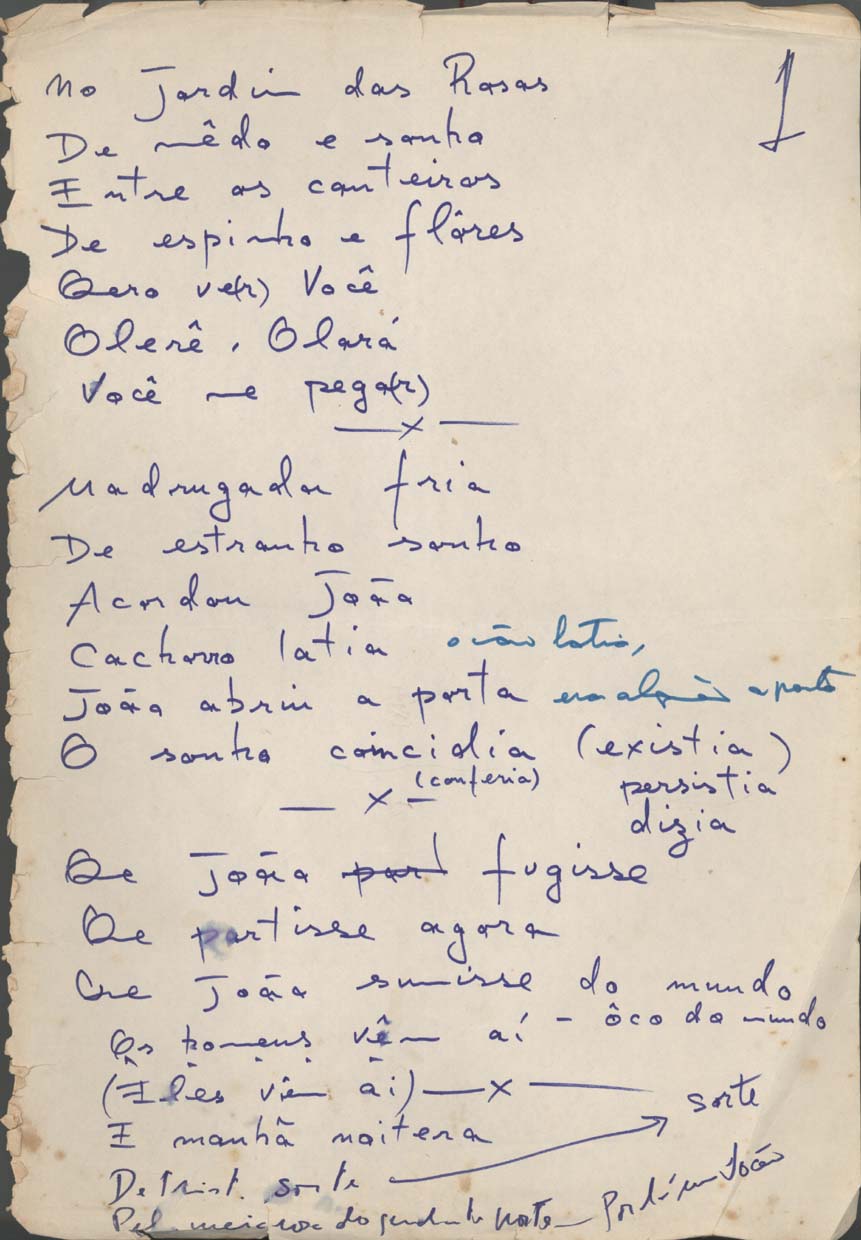 1
No Jardim das Rosas
De mêdo e sonho
Entre os canteiros
De espinho e flôres
Qero ve(r) Você
Olerê, Olará
Você me pega(r)
— x —
Madrugada fria
De estranho sonho
Acordou João
Cachorro latia o cão latia,
João abriu a porta a porta
O sonho coincidia (existia)
(conferia) persistia
— x — dizia
Qe João part fugisse
Qe partisse agora
Qe João sumisse do mundo
Os homens vêm aí – ôco do mundo
(Eles vêm aí) — x —
sorte
E manhã noitera
De trist. sorte
João